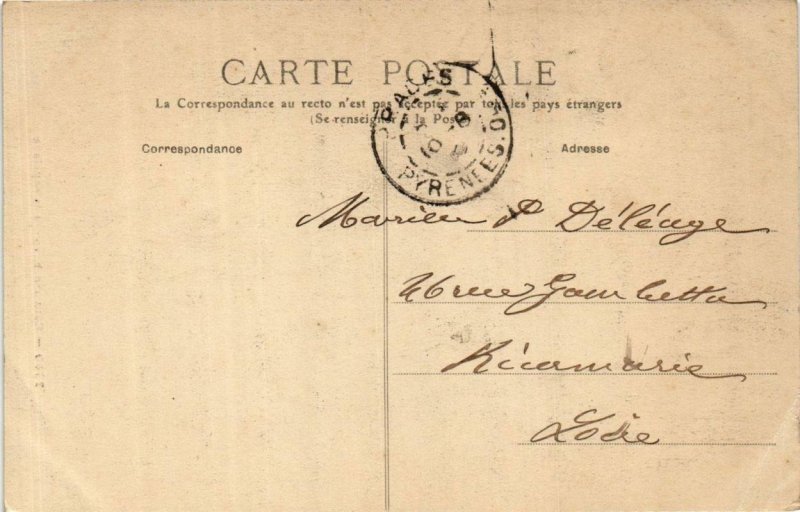 CARTE POSTALE
La Correspondance au recto n'est pas acceptée par tous les pays étrangers
(Se renseigner à la Poste)
Correspondance
Adresse
PYRENEES. O.
P. Déléage
rue Gambetta
Ricamarie
Loire